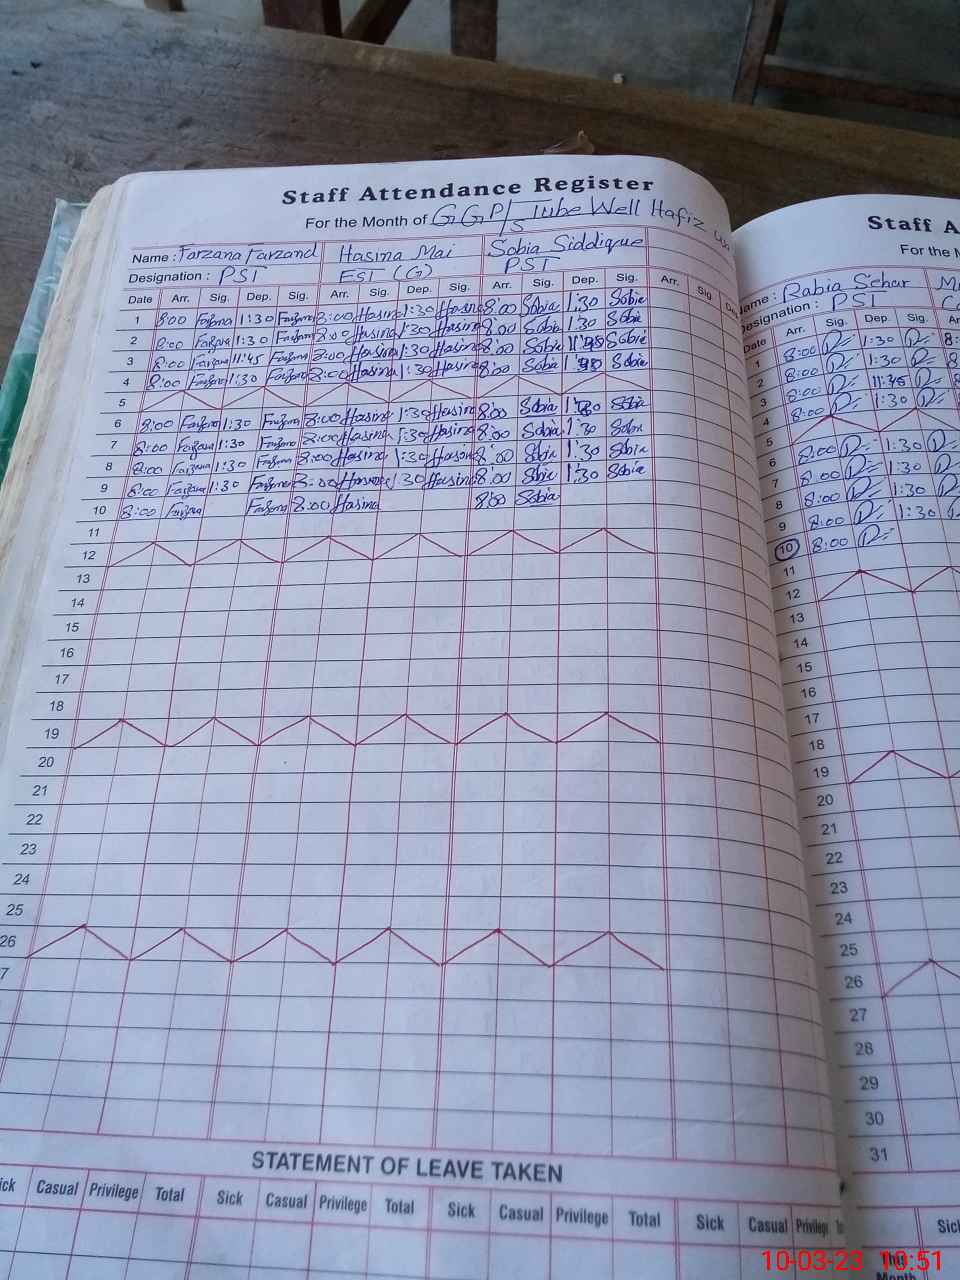 Staff Attendance Register
For the Month of GGP/S Tube Well Hafiz
Name : Farzana Farzand Hasina Mai Sobia Siddique
Designation : PST EST (G) PST
Date Arr. Sig. Dep. Sig. Arr. Sig. Dep. Sig. Arr. Sig. Dep. Sig. Arr. Sig
1 8:00 Farzana 1:30 Farzana 8:00 Hasina 1:30 Hasina 8:00 Sobia 1:30 Sobia
2 8:00 Farzana 1:30 Farzana 8:00 Hasina 1:30 Hasina 8:00 Sobia 1:30 Sobia
3 8:00 Farzana 11:45 Farzana 8:00 Hasina 1:30 Hasina 8:00 Sobia Sobia
4 8:00 Farzana 1:30 Farzana 8:00 Hasina 1:30 Hasina 8:00 Sobia Sobia
5
6 8:00 Farzana 1:30 Farzana 8:00 Hasina 1:30 Hasina 8:00 Sobia 1:30 Sobia
7 8:00 Farzana 1:30 Farzana 8:00 Hasina 1:30 Hasina 8:00 Sobia 1:30 Sobia
8 8:00 Farzana 1:30 Farzana 8:00 Hasina 1:30 Hasina 8:00 Sobia 1:30 Sobia
9 8:00 Farzana 1:30 Farzana 8:00 Hasina 1:30 Hasina 8:00 Sobia 1:30 Sobia
10 8:00 Farzana Farzana 8:00 Hasina 8:00 Sobia
11
12
13
14
15
16
17
18
19
20
21
22
23
24
25
26
7
STATEMENT OF LEAVE TAKEN
ick Casual Privilege Total Sick Casual Privilege Total Sick Casual Privilege Total Sick Casual Privilege
Staff A
For the M
Name : Rabia Sehar
Designation : PST
Date Arr. Sig. Dep. Sig. Ar
1 8:00 1:30 8:
2 8:00 1:30
3 8:00 11:45
4 8:00 1:30
5
6 8:00 1:30
7 8:00 1:30
8 8:00 1:30
9 8:00 1:30
10 8:00
11
12
13
14
15
16
17
18
19
20
21
22
23
24
25
26
27
28
29
30
31
Sick
This
Month
10-03-23 10:51